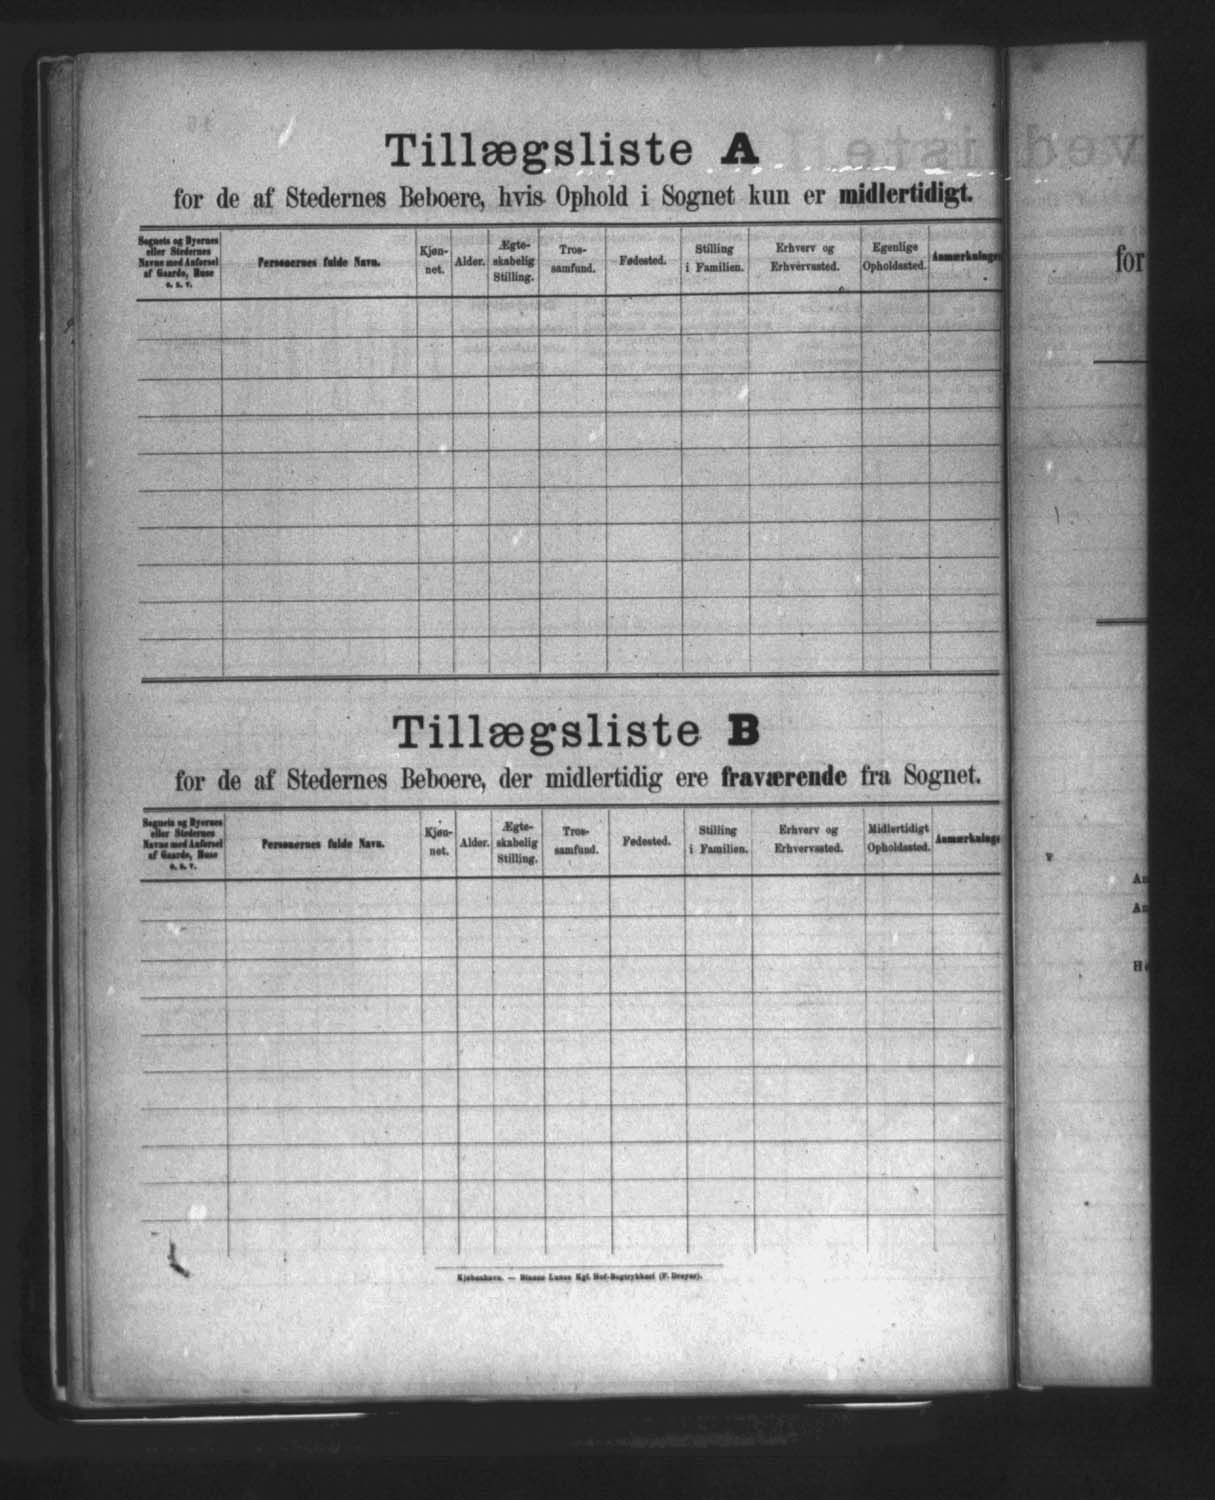 Tillægsliste A
for de af Stedernes Beboere, hvis Ophold i Sognet kun er midlertidigt.
Sognets og Byernes
eller Stedernes
Navne med Anførsel
af Gaarde, Huse
o. s. v.
Personernes fulde Navn.
Kjøn-
net.
Alder.
Ægte-
skabelig
Stilling.
Tros-
samfund.
Fødested.
Stilling
i Familien.
Erhverv og
Erhvervssted.
Egenlige
Opholdssted.
Anmærkninge
Tillægsliste B
for de af Stedernes Beboere, der midlertidig ere fraværende fra Sognet.
Sognets og Byernes
eller Stedernes
Navne med Anførsel
af Gaarde, Huse
o. s. v.
Personernes fulde Navn.
Kjøn-
net.
Alder.
Ægte-
skabelig
Stilling.
Tros-
samfund.
Fødested.
Stilling
i Familien.
Erhverv og
Erhvervssted.
Midlertidigt
Opholdssted.
Anmærkninge
Kjøbenhavn. — Bianco Lunos Kgl. Hof-Bogtrykkeri (F. Dreyer).
for
An
An